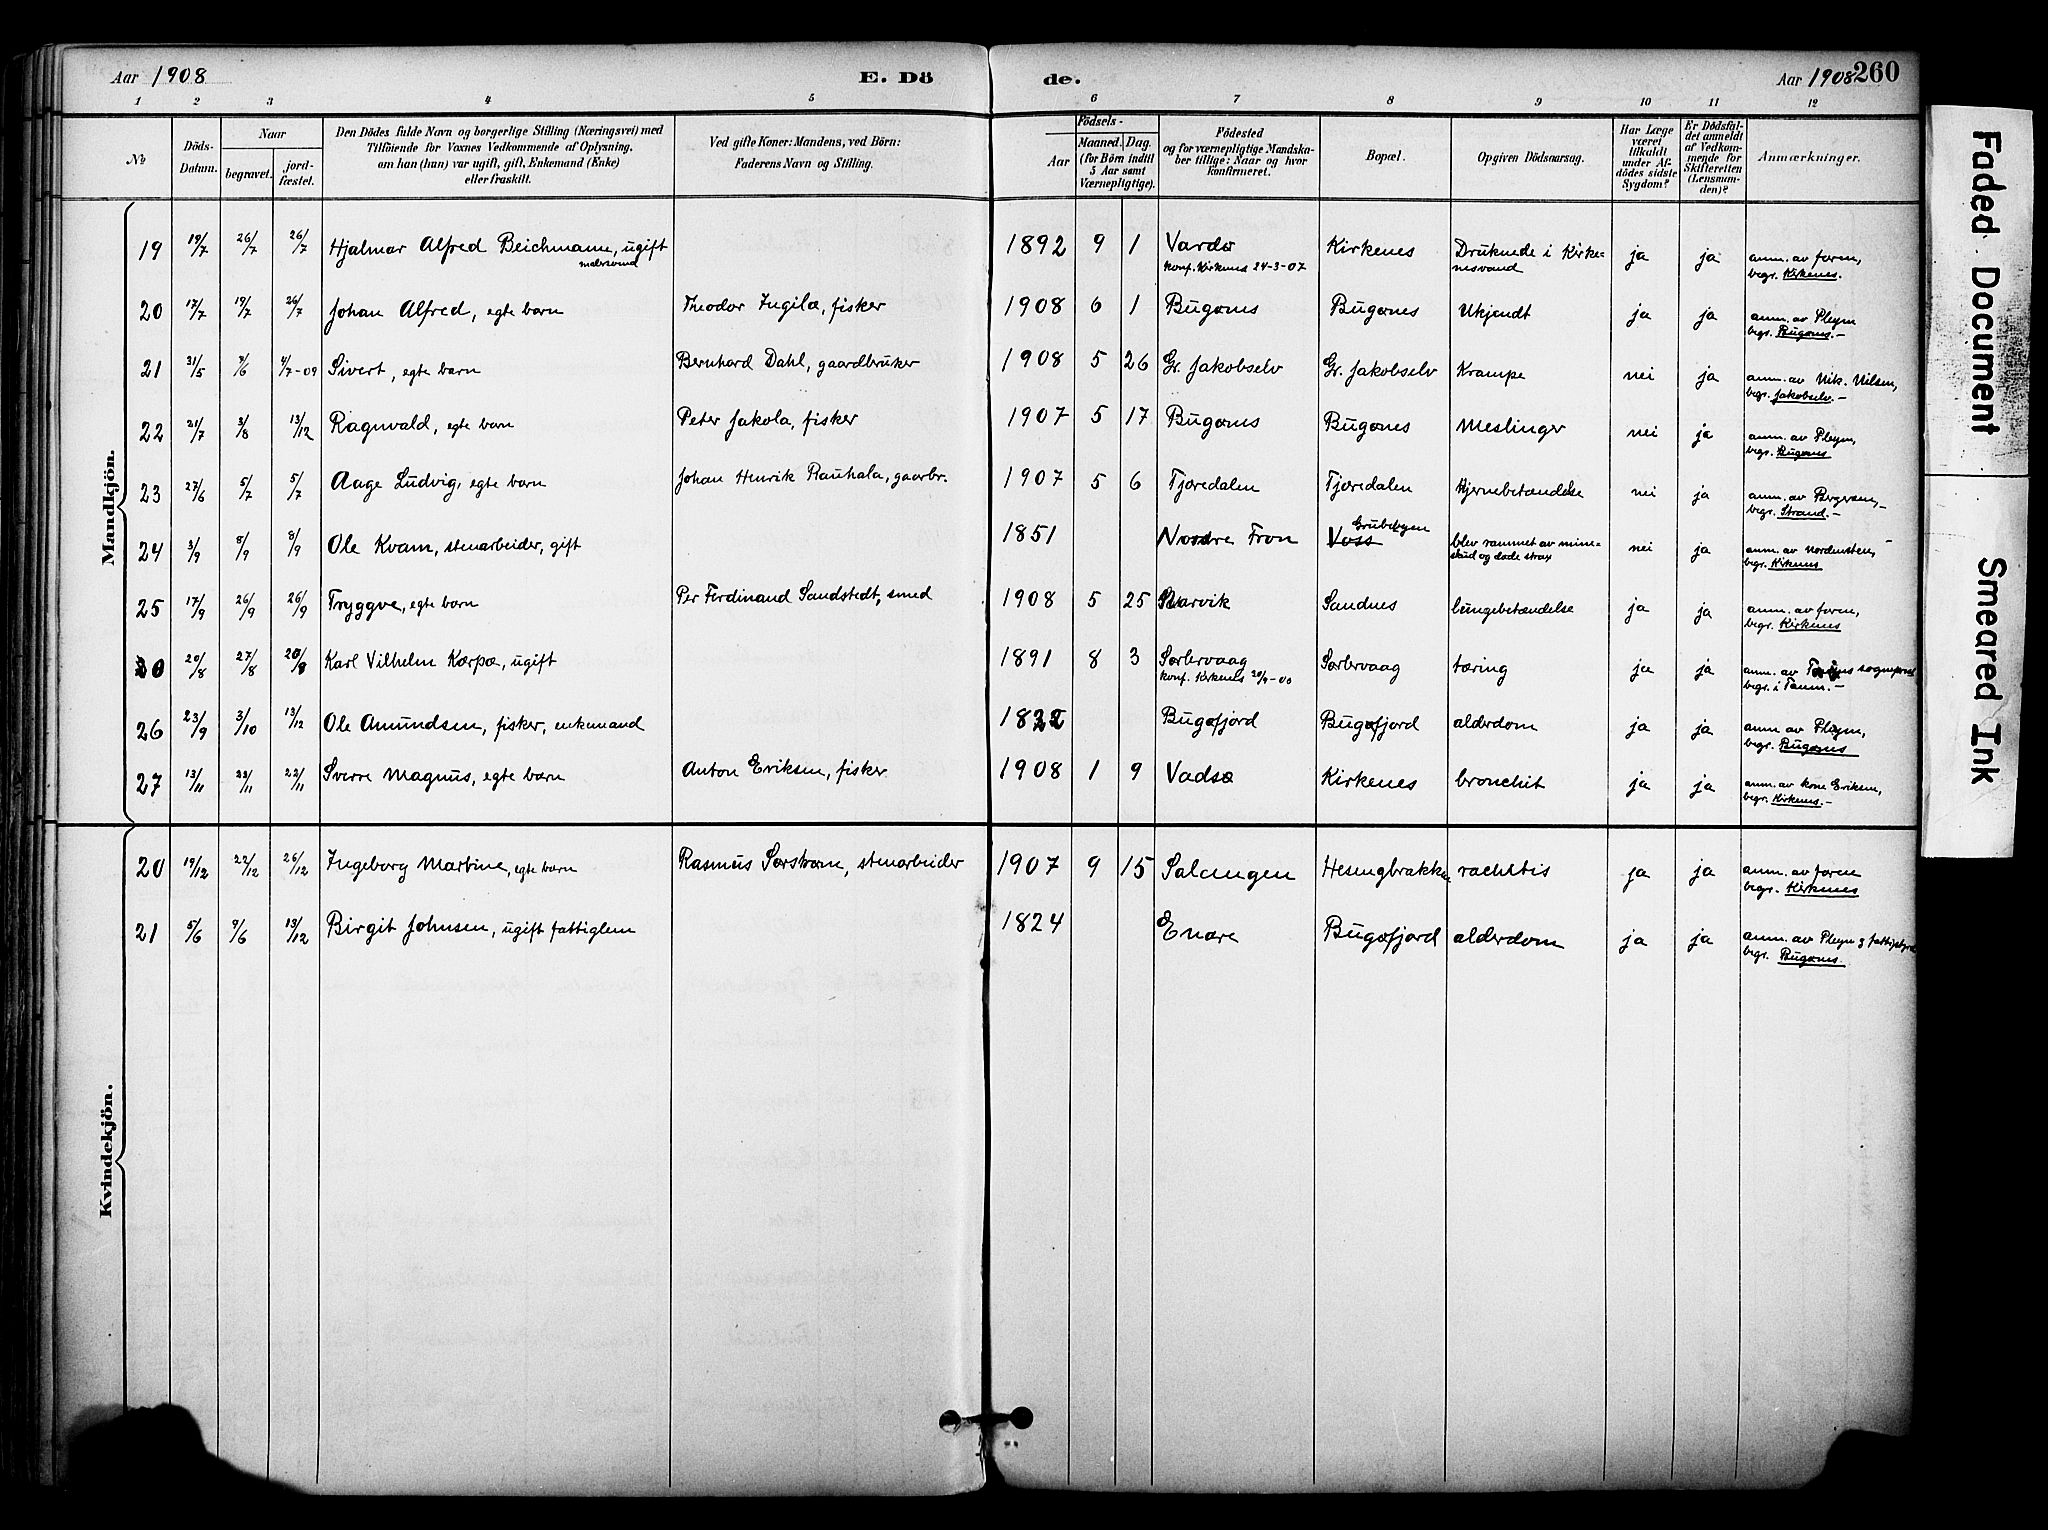 Aar 1908 E. Dö de. Aar 1908 260
1 2 3 4 5 6 7 8 9 10 11 12
No
Döds-Datum.
Naar
begravet.
jord-fæstet.
Den Dödes fulde Navn og borgerlige Stilling (Næringsvei) med
Tilföiende for Voxnes Vedkommende af Oplysning,
om han (hun) var ugift, gift, Enkemand (Enke)
eller fraskilt.
Ved gifte Koner: Mandens, ved Börn:
Faderens Navn og Stilling.
Födsels-
Aar
Maaned. Dag.
(for Börn indtil
5 Aar samt
Værnepligtige).
Födested
og for værnepligtige Mandska-
ber tillige: Naar og hvor
konfirmeret.
Bopæl.
Opgiven Dödsaarsag.
Har Læge
været
tilkaldt
under Af-
dödes sidste
Sygdom?
Er Dödsfal-
det anmeldt
af Vedkom-
mende for
Skifteretten
(Lensman-
den)?
Anmærkninger.
Mandkjön.
19 19/7 26/7 26/7 Hjalmar Alfred Beichmann, ugift 1892 9 1 Vardø Kirkenes Druknede i Kirke- ja ja anm. av faren,
konf. Kirkenes 24-3-07 nesvand begr. Kirkenes.
20 17/7 19/7 26/7 Johan Alfred, egte barn Theodor Ingilæ, fisker 1908 6 1 Bugønes Bugønes Ukjendt ja ja anm. av Pleym
begr. Bugønes.-
21 31/5 /6 4/7-09 Sivert, egte barn Bernhard Dahl, gaardbruker 1908 5 26 Gr. Jakobselv Gr. Jakobselv Krampe nei ja anm. av Nik. Nilsen,
begr. Jakobselv.-
22 21/7 3/8 13/12 Ragnvald, egte barn Peter Jakola, fisker 1907 5 17 Bugønes Bugønes Meslinger nei ja anm. av Pleym,
begr. Bugønes
23 27/6 5/7 5/7 Aage Ludvig, egte barn Johan Henrik Rauhala, gaarbr. 1907 5 6 Tjøredalen Tjøredalen Hjernebetændelse nei ja anm. av Bergersen,
begr. Strand.-
24 3/9 8/9 8/9 Ole Kvam, stenarbeider, gift 1851 Nordre Fron Voss Grubebyen blev rammet av mine- nei ja anm. av Nordensten,
skud og døde strax begr. Kirkenes
25 17/9 26/9 26/9 Tryggve, egte barn Per Ferdinand Sandstedt, smed 1908 5 25 Narvik Sandnes lungebetændelse ja ja anm. av faren,
begr. Kirkenes
20/8 27/8 Karl Vilhelm Karpæ, ugift 1891 8 3 Sørlervaag Sørlervaag tæring ja ja anm. av
konf. Kirkenes begr. i Tanm.-
26 23/9 3/10 13/12 Ole Amundsen, fisker, enkemand 1822 Bugøfjord Bugøfjord alderdom ja ja anm av Pleym,
begr. Bugønes
27 13/11 22/11 22/11 Sverre Magnus, egte barn Anton Eriksen, fisker 1908 1 9 Vadsø Kirkenes bronchit ja ja anm. av kone Eriksen,
begr. Kirkenes.-
Kvindekjön.
20 19/12 22/12 26/12 Ingeborg Martine, egte barn Rasmus Sørstrøm, stenarbeider 1907 9 15 Salangen Hesengbrakken rachitis ja ja anm. av faren
begr. Kirkenes
21 5/6 9/6 13/12 Birgit Johnsen, ugift fattiglem 1824 Enare Bugøfjord alderdom ja ja anm. av Pleym
begr. Bugønes.
Faded Document
Smeared Ink